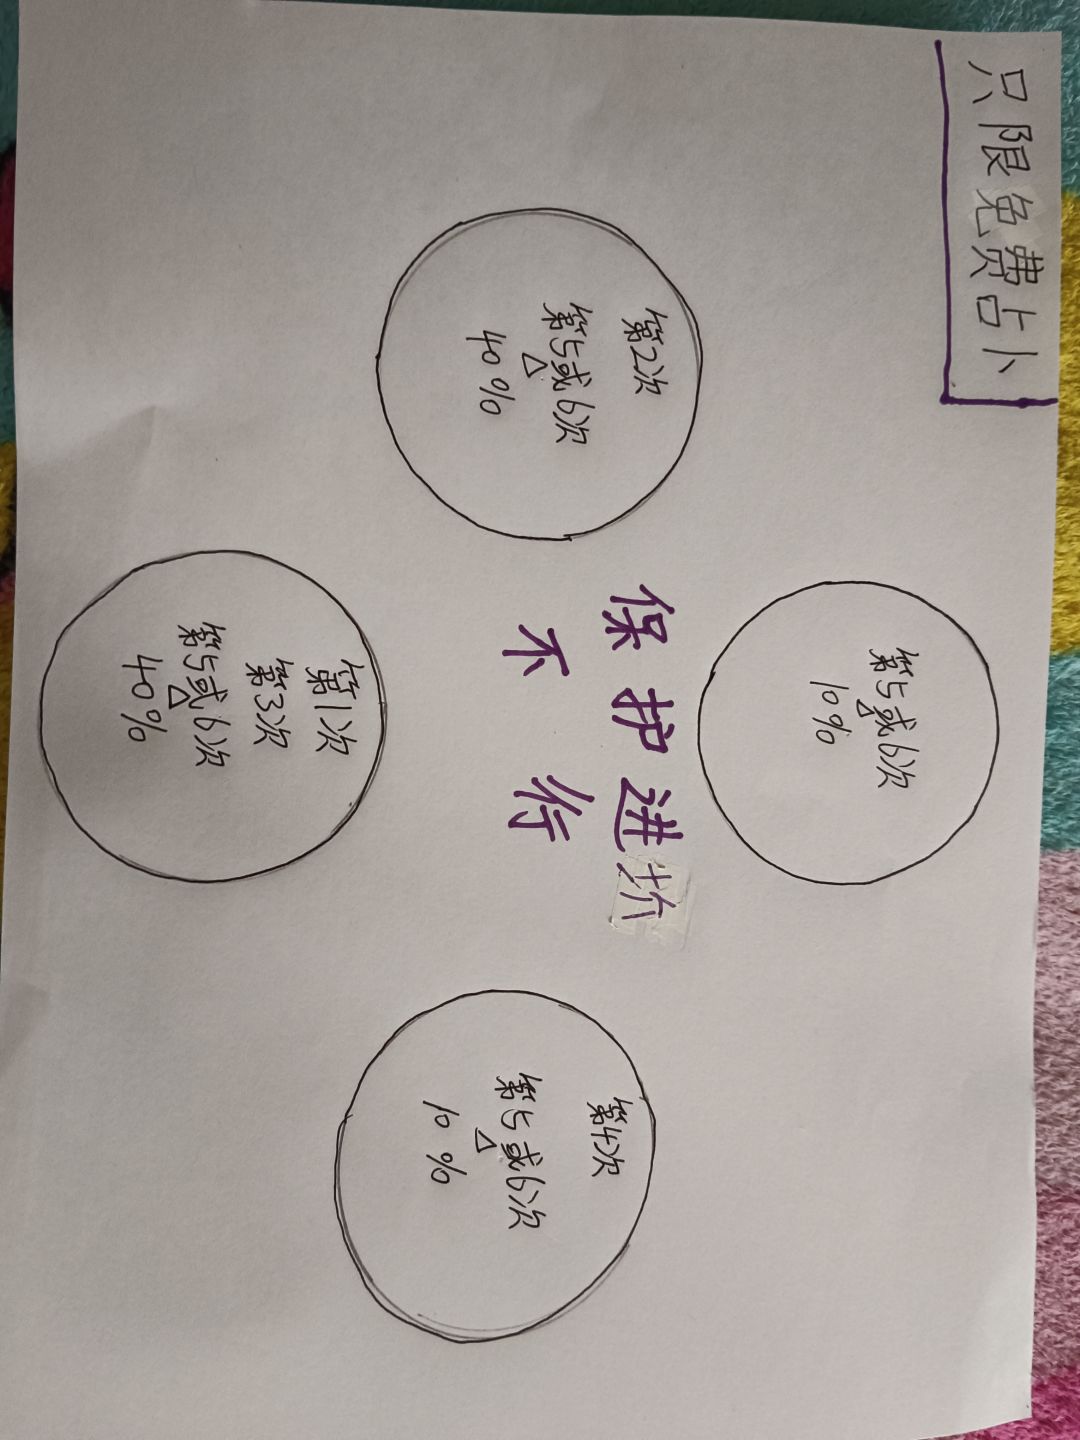 只限免费占卜
第5或6次
△
10%
第2次
第5或6次
△
40%
保护进
不行
第4次
第5或6次
△
10%
第1次
第3次
第5或6次
△
40%